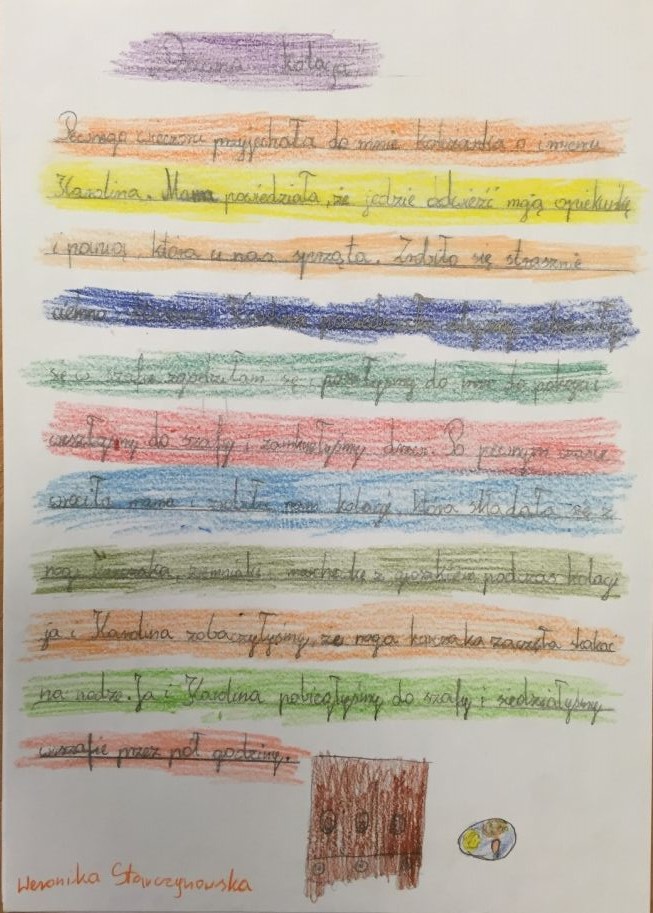 "Dziwna kolacja"
Pewnego wieczoru przyjechała do mnie koleżanka o imieniu
Karolina. Mama powiedziała, że jedzie odwieźć moją opiekunkę
i panią, która u nas sprząta. Zrobiło się strasznie
ciemno
się w szafie zgodziłam się i poszłyśmy do mnie do pokoju i
weszłyśmy do szafy i zamknęłyśmy drzwi. Po pewnym czasie
wróciła mama i zrobiła nam kolację, która składała się z
nogi kurczaka, ziemniaki i marchewkę z groszkiem podczas kolacji
ja i Karolina zobaczyłyśmy, że noga kurczaka zaczęła skakać
na nodze. Ja i Karolina pobiegłyśmy do szafy i siedziałyśmy
w szafie przez pół godziny.
Weronika Starczynowska